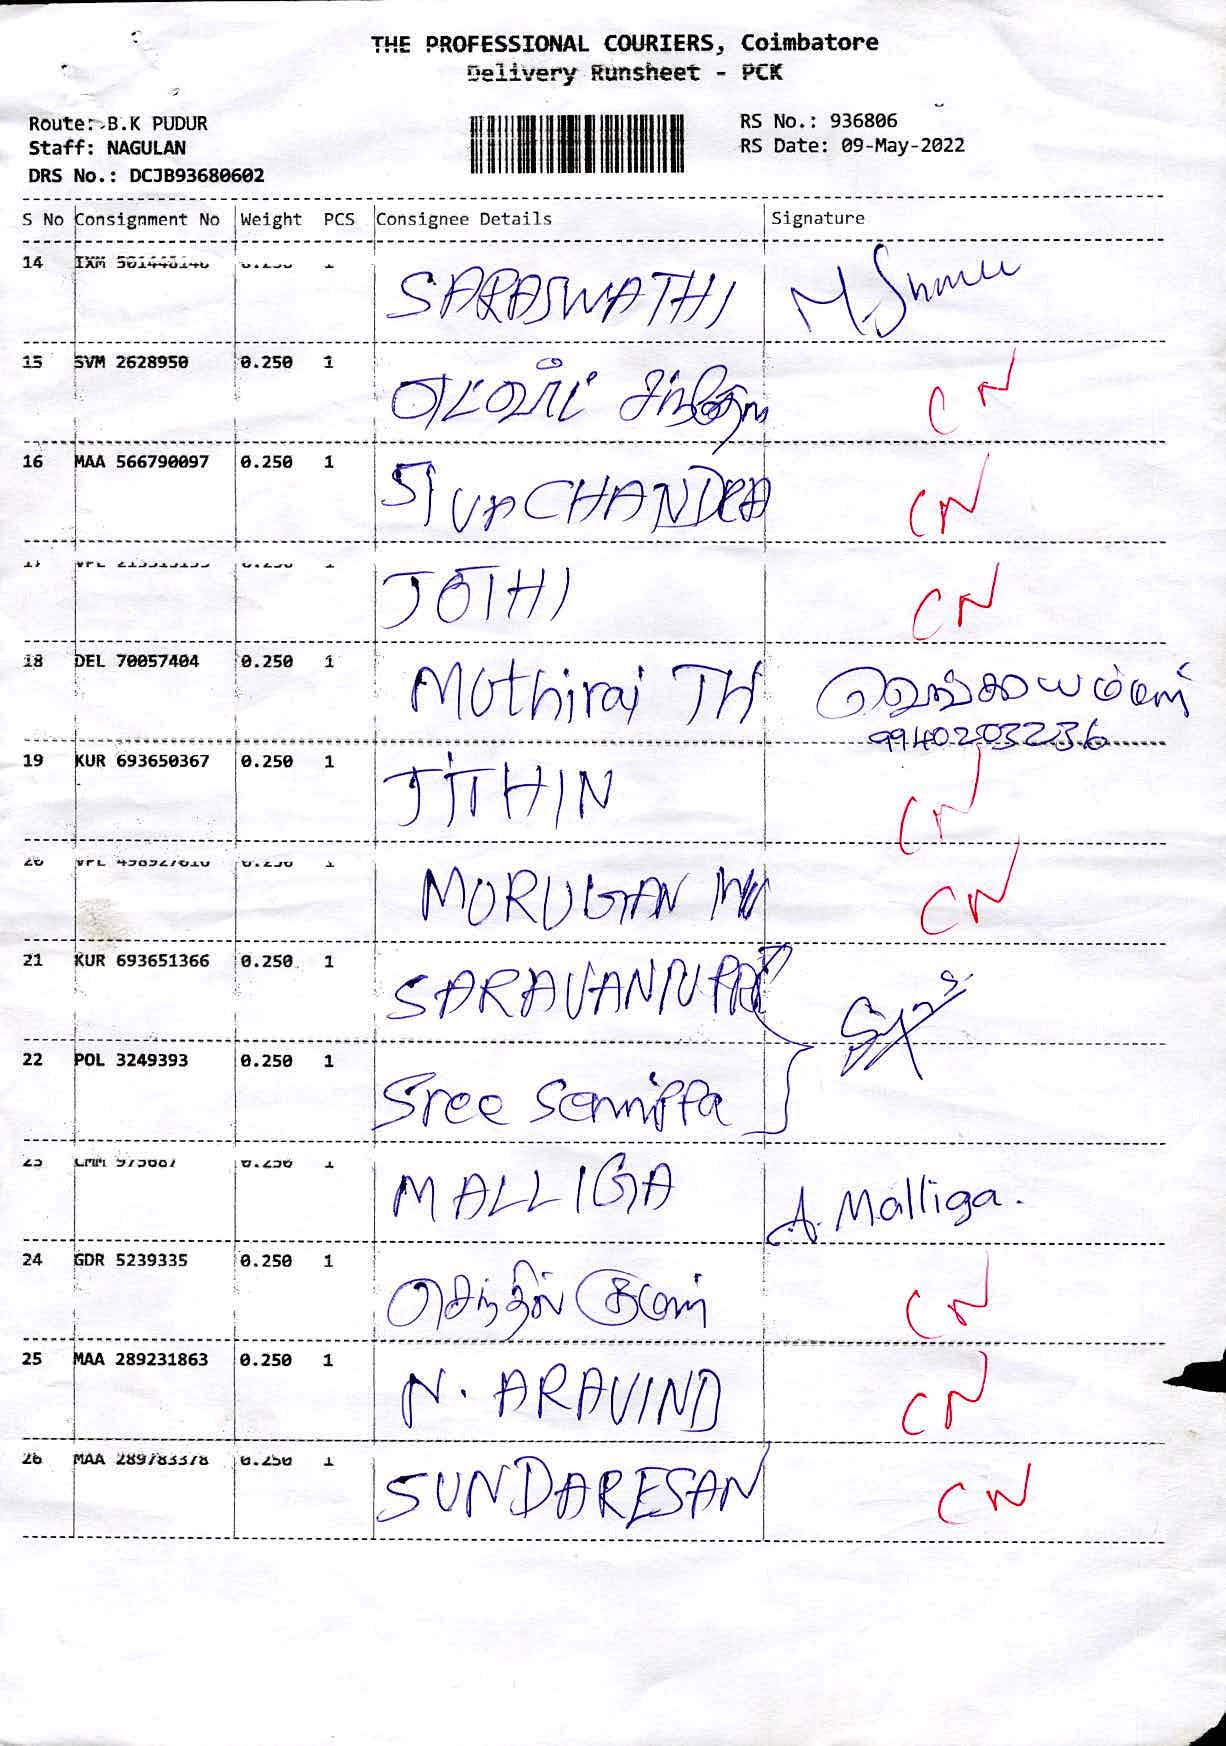 THE PROFESSIONAL COURIERS, Coimbatore
Delivery Runsheet - PCK
Route: B.K PUDUR
Staff: NAGULAN
DRS No.: DCJB93680602
RS No.: 936806
RS Date: 09-May-2022
S No Consignment No Weight PCS Consignee Details Signature
14 IXM 0.250 1 SARASWATHI
15 SVM 2628950 0.250 1 CN
16 MAA 566790097 0.250 1 CN
17 0.250 1 JOTHI CN
18 DEL 70057404 0.250 1 Muthiraj TH
9940203236
19 KUR 693650367 0.250 1 JITHIN CN
20 0.250 1 MURUGAN CN
21 KUR 693651366 0.250 1
22 POL 3249393 0.250 1 Sree
23 0.250 1 MALLIGA A. Malliga.
24 GDR 5239335 0.250 1 செந்தில் குமார் CN
25 MAA 289231863 0.250 1 N. ARAVIND CN
26 MAA 289783378 0.250 1 SUNDARESAN CN